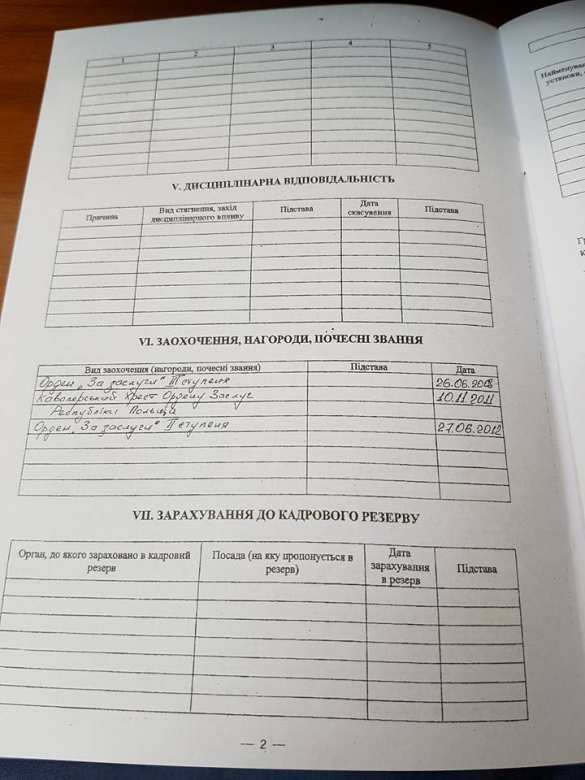 1 2 3 4 5
V. ДИСЦИПЛІНАРНА ВІДПОВІДАЛЬНІСТЬ
Причина Вид стягнення, захід дисциплінарного впливу Підстава Дата скасування Підстава
VI. ЗАОХОЧЕННЯ, НАГОРОДИ, ПОЧЕСНІ ЗВАННЯ
Вид заохочення (нагороди, почесні звання) Підстава Дата
Орден „За заслуги" III ступеня 26.06.2008
Кавалерський Хрест Ордену Заслуг 10.11.2011
Республіки Польща
Орден „За заслуги" II ступеня 27.06.2012
VII. ЗАРАХУВАННЯ ДО КАДРОВОГО РЕЗЕРВУ
Орган, до якого зараховано в кадровий резерв Посада (на яку пропонується в резерв) Дата зарахування в резерв Підстава
— 2 —
установи,